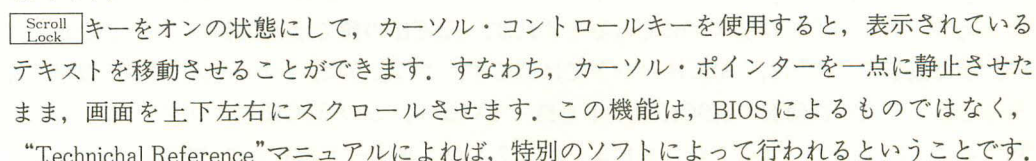 Scroll Lock キーをオンの状態にして，カーソル・コントロールキーを使用すると，表示されている
テキストを移動させることができます．すなわち，カーソル・ポインターを一点に静止させた
まま，画面を上下左右にスクロールさせます．この機能は，BIOSによるものではなく，
“Technichal Reference”マニュアルによれば，特別のソフトによって行われるということです